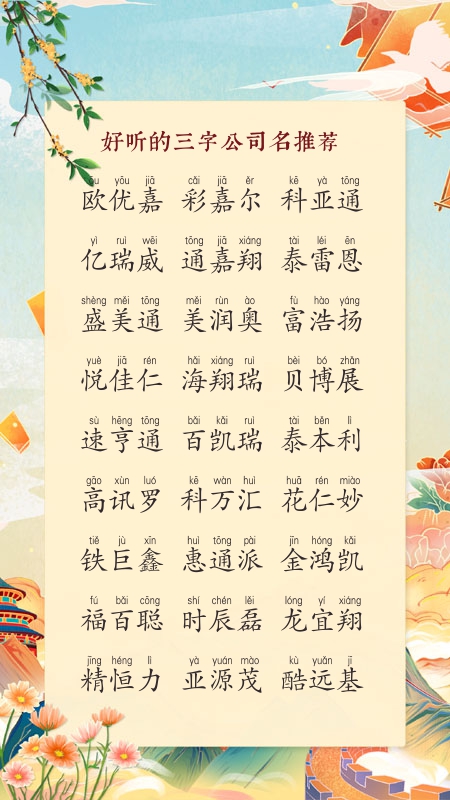 好听的三字公司名推荐
ōu yōu jiā cǎi jiā ěr kē yà tōng
欧优嘉 彩嘉尔 科亚通
yì ruì wēi tōng jiā xiáng tài léi ēn
亿瑞威 通嘉翔 泰雷恩
shèng měi tōng měi rùn ào fù hào yáng
盛美通 美润奥 富浩扬
yuè jiā rén hǎi xiáng ruì bèi bó zhǎn
悦佳仁 海翔瑞 贝博展
sù hēng tōng bǎi kǎi ruì tài běn lì
速亨通 百凯瑞 泰本利
gāo xùn luó kē wàn huì huā rén miào
高讯罗 科万汇 花仁妙
tiě jù xīn huì tōng pài jīn hóng kǎi
铁巨鑫 惠通派 金鸿凯
fú bǎi cōng shí chén lěi lóng yí xiáng
福百聪 时辰磊 龙宜翔
jīng héng lì yà yuán mào kù yuǎn jī
精恒力 亚源茂 酷远基